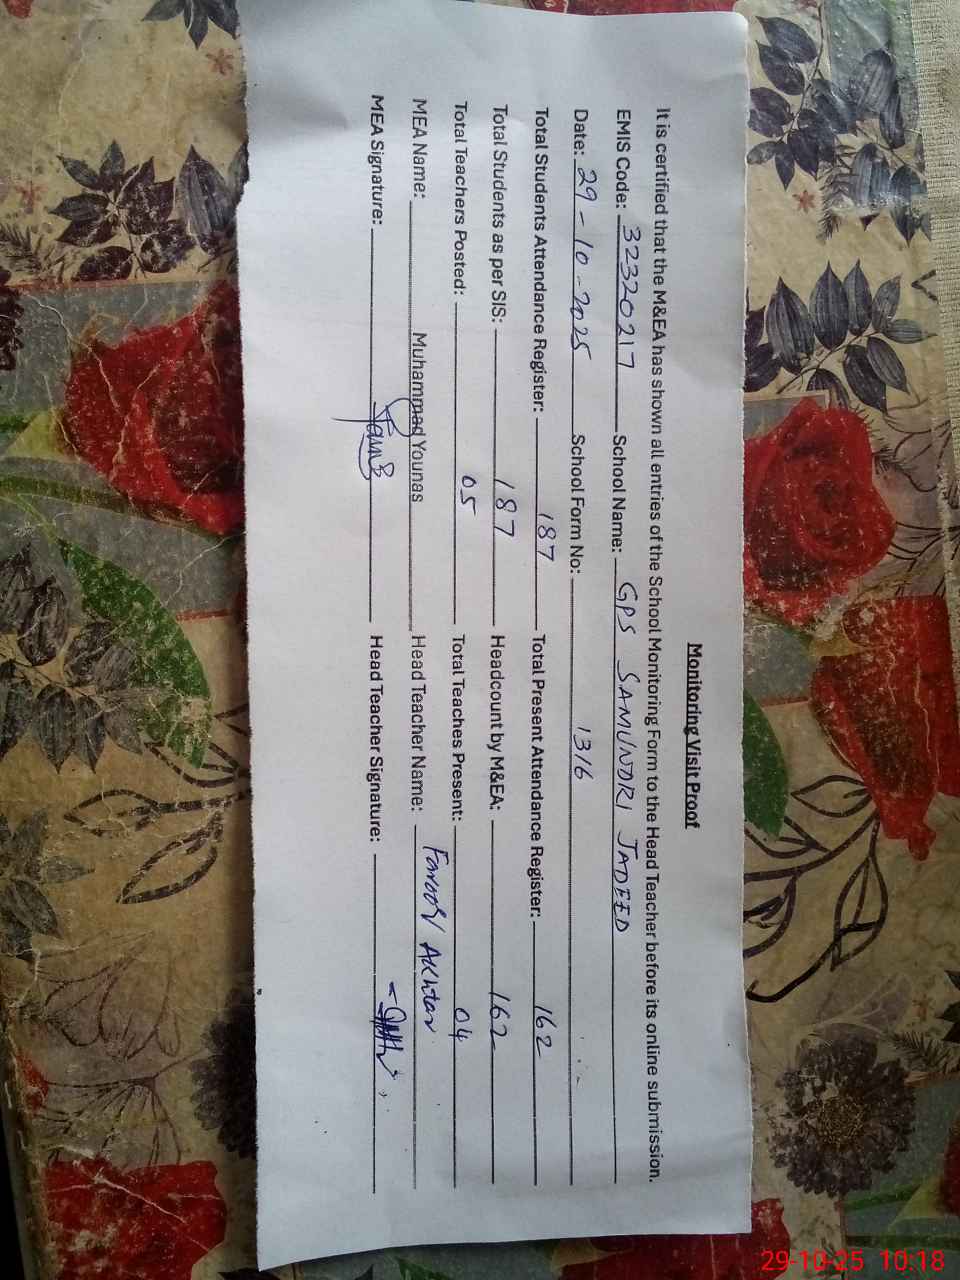 Monitoring Visit Proof
It is certified that the M&EA has shown all entries of the School Monitoring Form to the Head Teacher before its online submission.
EMIS Code: 32320217 School Name: GPS SAMUNDRI JADEED
Date: 29-10-2025 School Form No: 1316
Total Students Attendance Register: 187 Total Present Attendance Register: 162
Total Students as per SIS: 187 Headcount by M&EA: 162
Total Teachers Posted: 05 Total Teaches Present: 04
MEA Name: Muhammad Younas Head Teacher Name: Farooq Akhtar
MEA Signature: Head Teacher Signature:
29-10-25 10:18